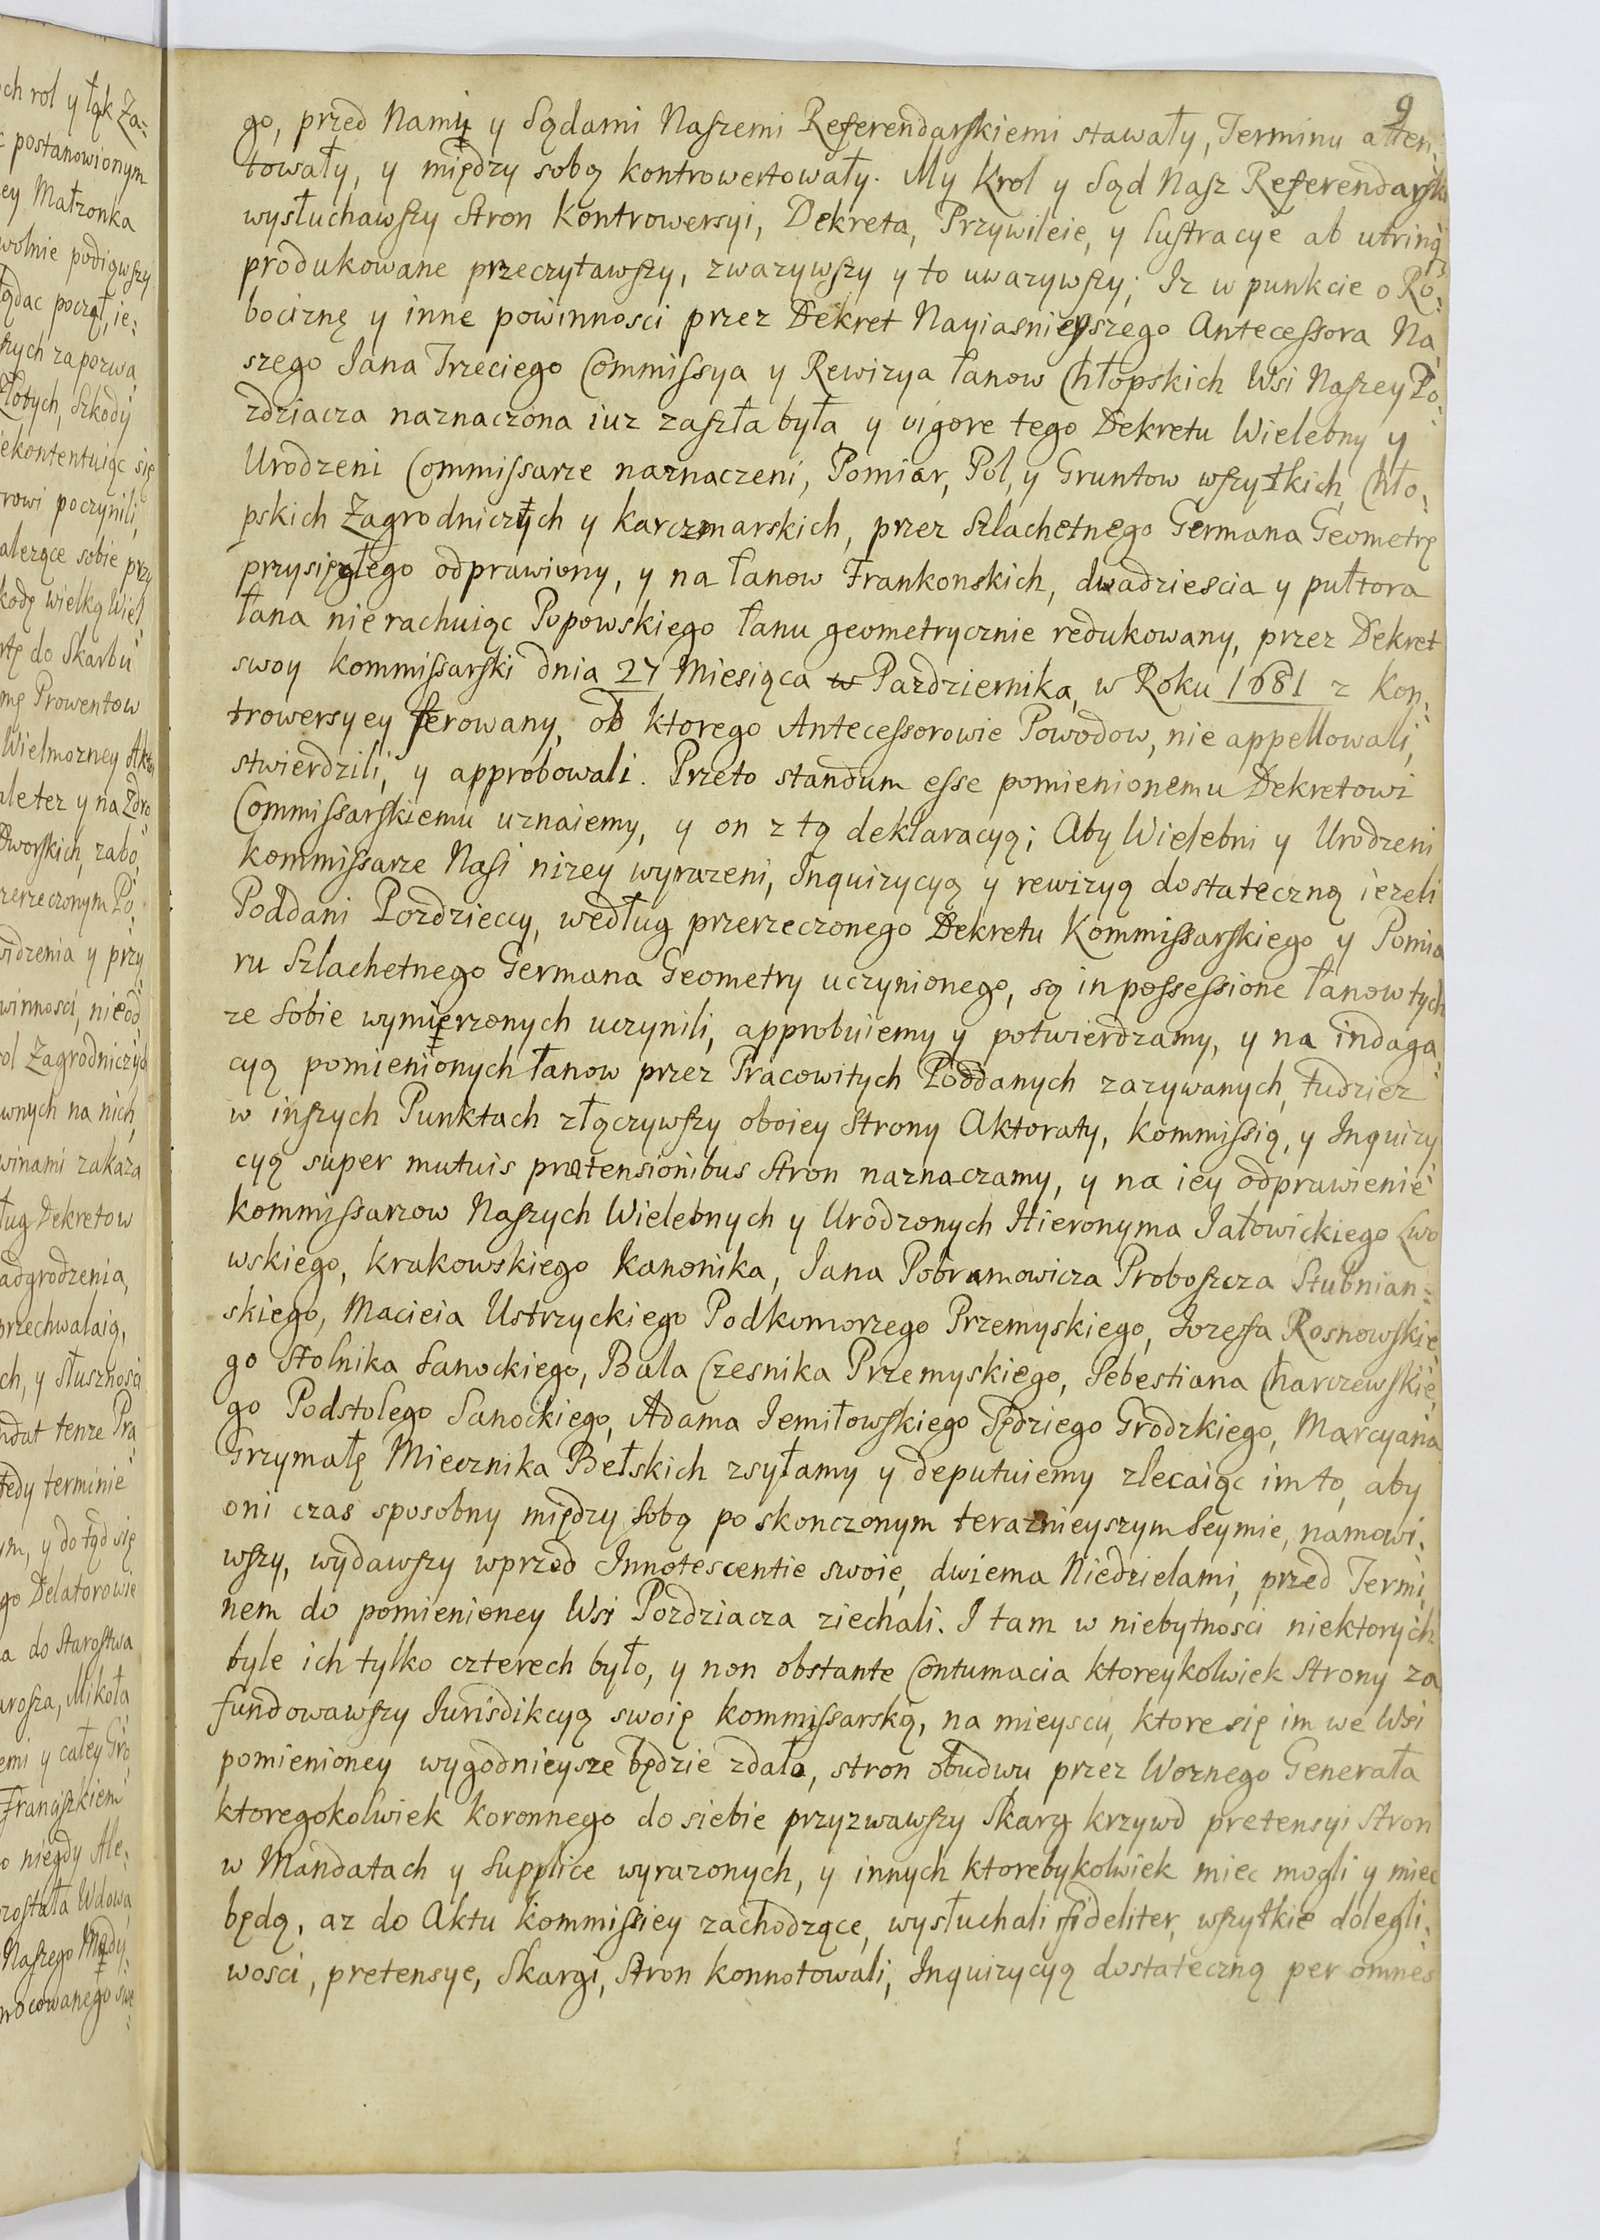 9
go, przed Nami y Sądami Naszemi Referendarskiemi stawały, Terminu atten⸗
towały, y między sobą kontrowertowały. My Krol y Sąd Nasz Referendarski
wysłuchawszy Stron Kontrowersyi, Dekreta, Przywileie, y lustracye ab utrinq
produkowane przeczytawszy, zwazywszy y to uwazywszy; Iz w punkcie o Ro⸗
bociznę y inne powinnosci przez Dekret Nayiasnieyszego Antecessora Na⸗
szego Iana Trzeciego Commissya y Rewizya łanow Chłopskich Wsi Naszey Po⸗
zdziacza naznaczona iuz zaszła była, y vigore tego Dekretu Wielebny y
Urodzeni Commissarze naznaczeni, Pomiar, Pol, y Gruntow wszytkich, Chło⸗
pskich Zagrodniczych y karczmarskich, przez Szlachetnego Germana Geometrę
przysięgłego odprawiony, y na łanow Frankonskich, dwadziescia y pułtora
łana nie rachuiąc Popowskiego łanu geometrycznie redukowany, przez Dekret
swoy kommissarski dnia 27 Miesiąca w Pazdziernika, w Roku 1681 z kon⸗
trowersyey ferowany, od ktorego Antecessorowie Powodow, nie appellowali,
stwierdzili, y approbowali. Przeto standum esse pomienionemu Dekretowi
Commissarskiemu uznaiemy, y on z tą deklaracyą; Aby Wielebni y Urodzeni
kommissarze Nasi nizey wyrazeni, Inquizycyą y rewizyą dostateczną iezeli
Poddani Pozdzieccy, według przerzeczonego Dekretu Kommissarskiego y Pomia
ru Szlachetnego Germana Geometry uczynionego, są in possessione łanow tych
ze sobie wymierzonych uczynili, approbuiemy y potwierdzamy, y na indaga⸗
cyą pomienionych łanow przez Pracowitych Poddanych zazywanych, tudziez
w inszych Punktach złączywszy oboiey Strony Aktoraty, kommissią, y Inquizy
cyą super mutuis prætensionibus Stron naznaczamy, y na iey odprawienie
kommissarzow Naszych Wielebnych y Urodzonych Hieronyma Iałowickiego Lwo
wskiego, krakowskiego kanonika, Iana Pobramowicza Proboszcza Stubnian⸗
skiego, Macieia Ustrzyckiego Podkomorzego Przemyskiego, Iozefa Rosnowskie⸗
go Stolnika Sanockiego, Bala Czesnika Przemyskiego, Sebestiana Charczewskie⸗
go Podstolego Sanockiego, Adama Iemiłowskiego Sędziego Grodzkiego, Marcyana
Grzymałę Miecznika Bełskich zsyłamy y deputuiemy zlecaiąc im to, aby
oni czas sposobny między sobą po skonczonym teraznieyszym Seymie, namowi⸗
wszy, wydawszy wprzod Innotescentie swoie, dwiema Niedzielami, przed Termi⸗
nem do pomienioney Wsi Pozdziacza ziechali. I tam w niebytnosci niektorych
byle ich tylko czterech było, y non obstante Contumacia ktoreykolwiek Strony za
fundowawszy Iurisdikcyą swoię kommissarską, na mieyscu, ktore się im we Wsi
pomienioney wygodnieysze będzie zdało, stron obudwu przez Woznego Generała
ktoregokolwiek koronnego do siebie przyzwawszy Skarg krzywd pretensyi Stron
w Mandatach y Supplice wyrazonych, y innych ktorebykolwiek miec mogli y miec
będą, az do Aktu kommissiey zachodzące, wysłuchali fideliter, wszytkie dolegli⸗
wosci, pretensye, Skargi, Stron konnotowali, Inquizycyą dostateczną per omnes